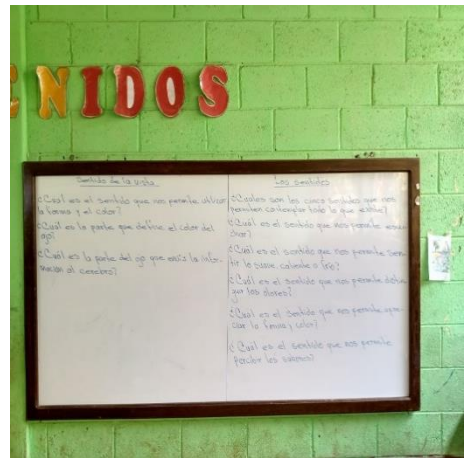 NIDOS
Sentido de la vista
¿Cuál es el sentido que nos permite utilizar
la forma y el color?
¿Cuál es la parte que define el color del
ojo?
¿Cuál es la parte del ojo que envía la infor-
mación al cerebro?
Los sentidos
¿Cuáles son los cinco sentidos que nos
permiten contemplar todo lo que existe?
¿Cuál es el sentido que nos permite escu-
char?
¿Cuál es el sentido que nos permite sen-
tir lo suave, caliente o frío?
¿Cuál es el sentido que nos permite
los olores?
¿Cuál es el sentido que nos permite apre-
ciar la forma y color?
¿Cuál es el sentido que nos permite
percibir los sabores?